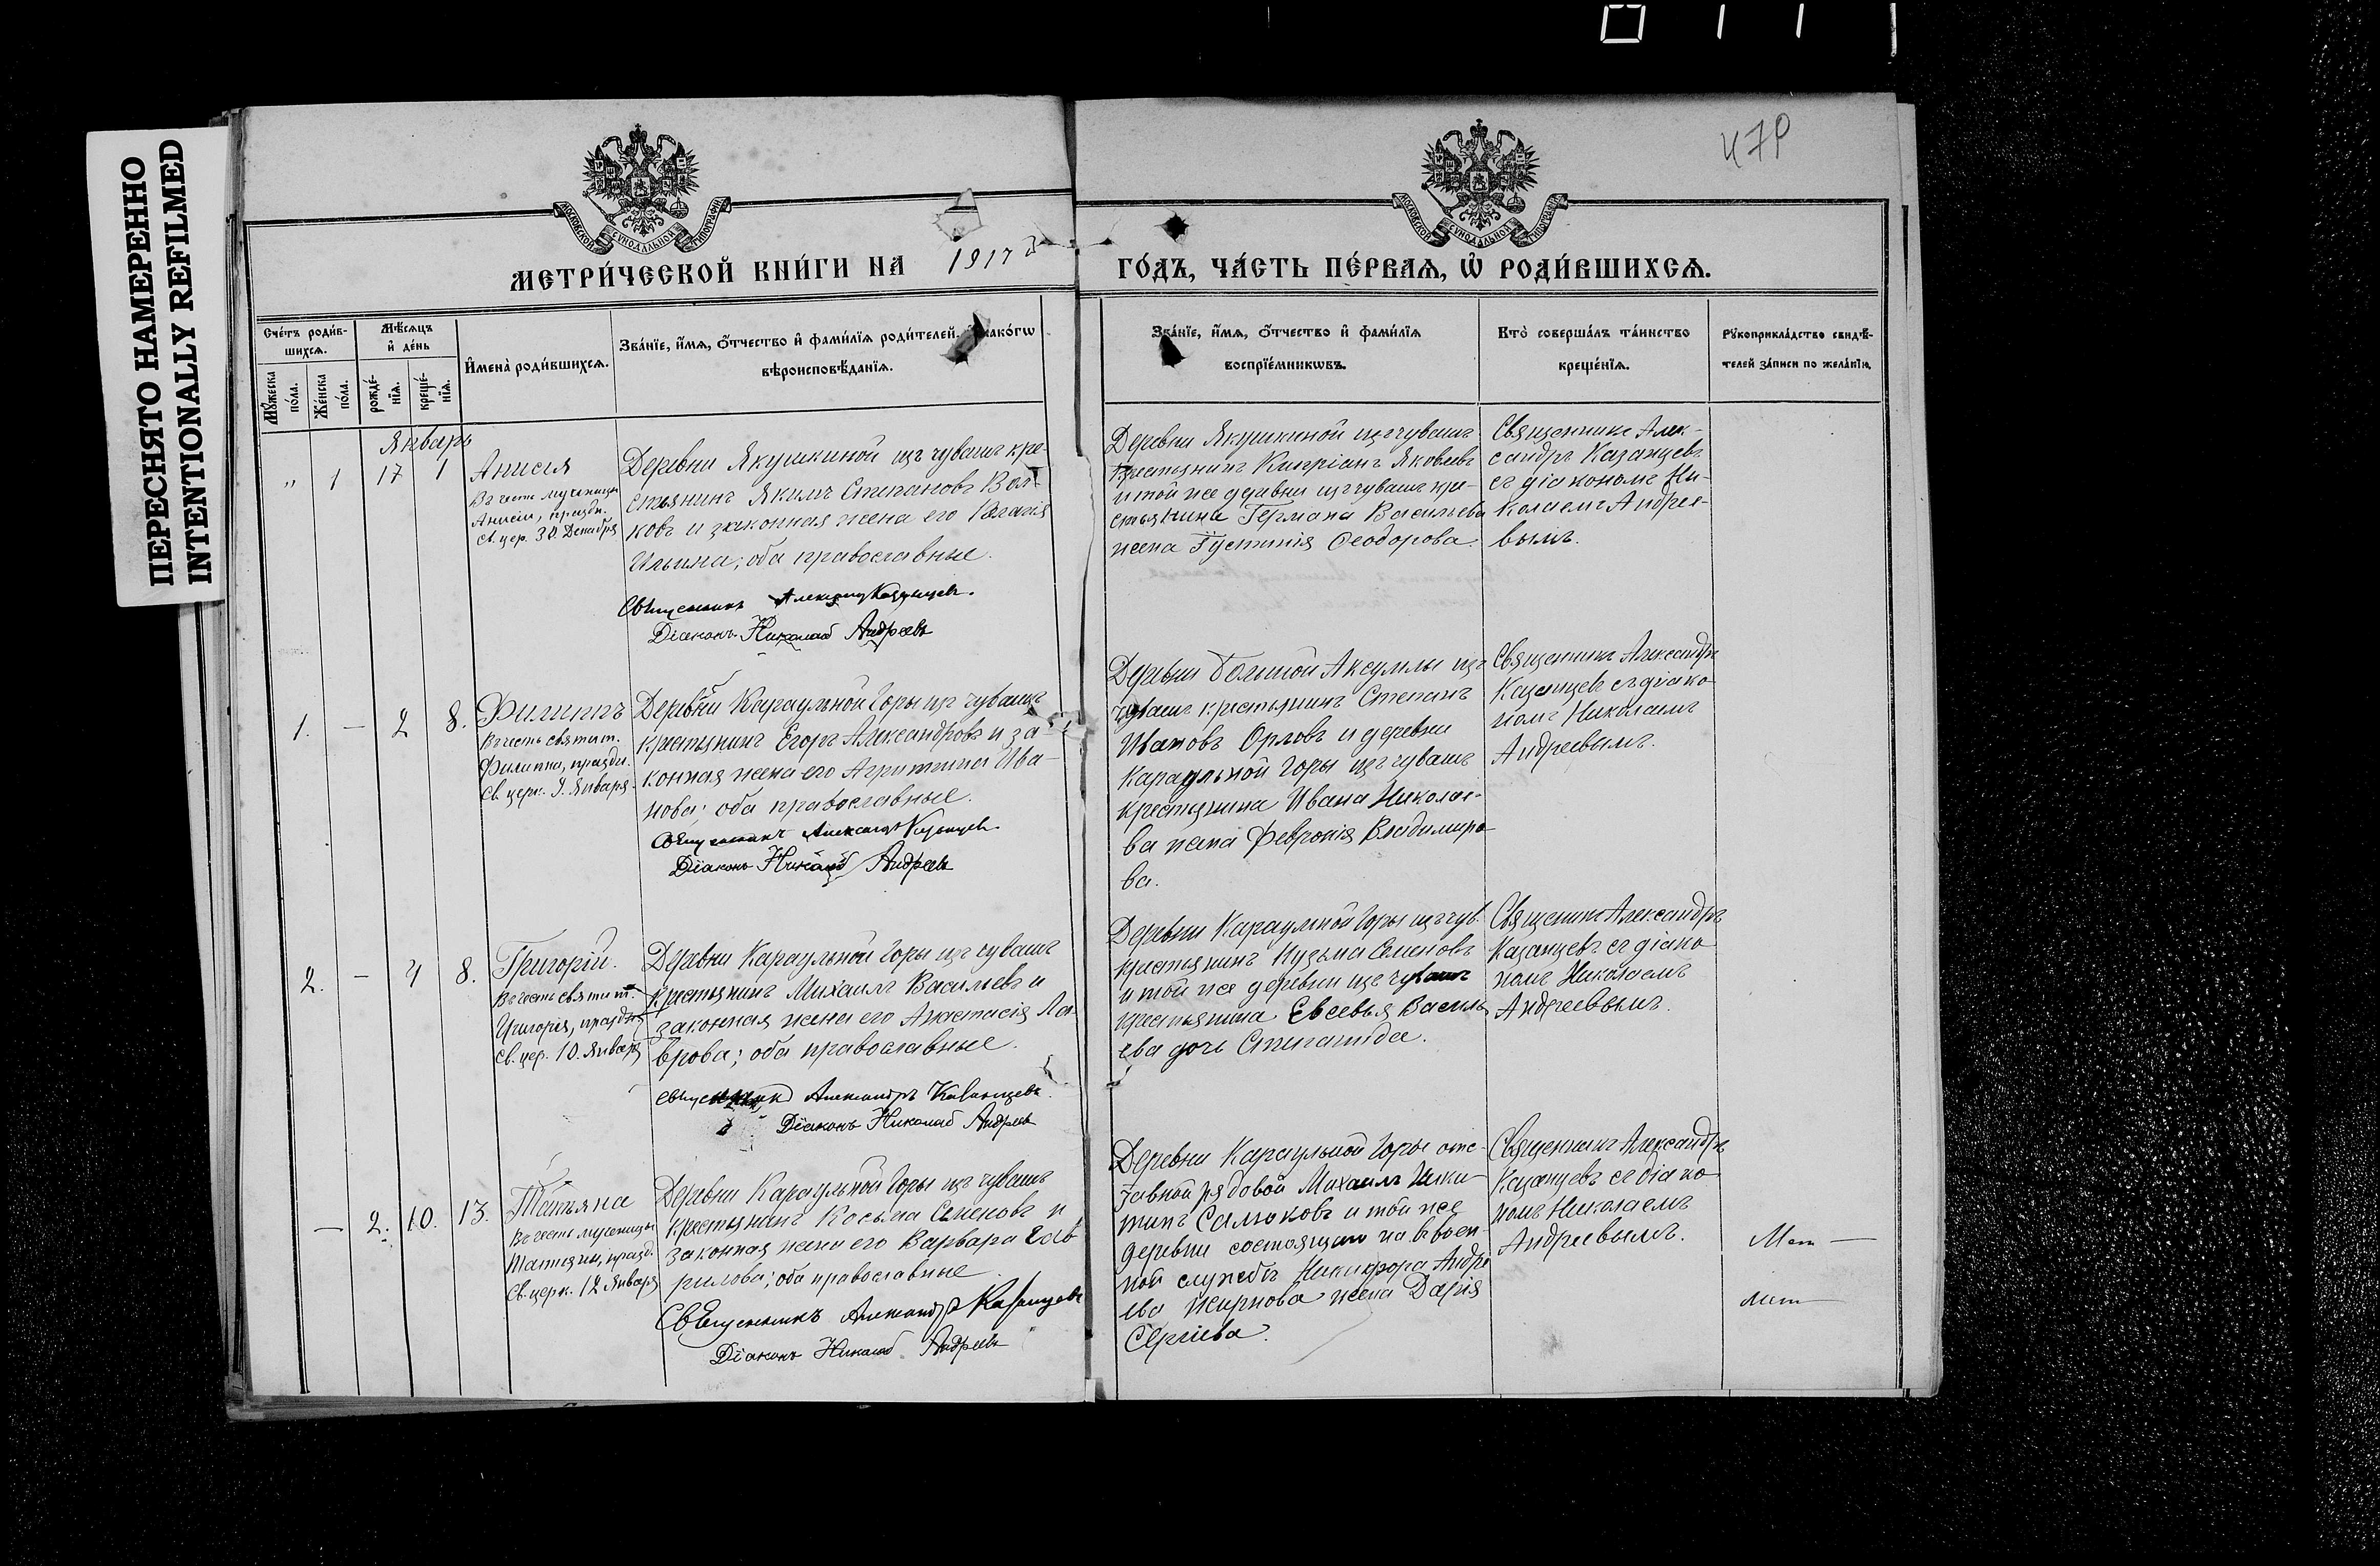 ПЕРЕСНЯТО НАМЕРЕННО
INTENTIONALLY REFILMED
МОСКОВСКОЙ СѴНОДАЛЬНОЙ ТИПОГРАФІИ
МОСКОВСКОЙ СѴНОДАЛЬНОЙ ТИПОГРАФІИ
МЕТРИ́ЧЕСКОЙ КНИ́ГИ НА 1917
ГО́ДЪ, ЧА́СТЬ ПЕ́РВАѦ, Ѡ҆ РОДИ́ВШИХСѦ.
Сче́тъ роди́в-
шихсѧ.
Мѹ́жеска по́ла.
Же́нска по́ла.
Мѣ́сѧцъ
и҆ де́нь
рожде́-
нїѧ.
креще́-
нїѧ.
И҆мена̀ роди́вшихсѧ.
Зва́нїе, и҆́мѧ, ѻ҆́тчество и҆ фами́лїѧ роди́телей, и҆ како́гѡ
вѣроисповѣ́данїѧ.
Зва́нїе, и҆́мѧ, ѻ҆́тчество и҆ фами́лїѧ
воспрїе́мникѡвъ.
Кто̀ соверша́лъ та́инство
креще́нїѧ.
Рѹкоприкла́дство свидѣ́-
телей за́писи по жела́нїю.
Январь
" 1 17 1
Анисія
Въ честь мученицы
Анисіи, праздн.
св. цер. 30. Декабря
Деревни Якушкиной изъ чувашъ кре-
стьянинъ Якимъ Степановъ Вол-
ковъ и законная жена его
Ильина; оба православные.
Священникъ Александръ Казанцевъ.
Діаконъ Николай Андреевъ
Деревни Якушкиной изъ чувашъ
крестьянинъ Кипріанъ Яковлевъ
и той же деревни изъ чувашъ кре-
стьянина Германа Васильева
жена Іустинія Ѳеодорова.
Священникъ Алек-
сандръ Казанцевъ
съ діакономъ Ни-
колаемъ Андрее-
вымъ.
1. — 2 8.
Филиппъ
Въ честь святит.
Филиппа, праздн.
св. церк. 9. Января.
Деревни Караульной Горы изъ чувашъ
крестьянинъ Егоръ Александровъ и за-
конная жена его Агриппина Ива-
нова; оба православные.
Священникъ Александръ Казанцевъ.
Діаконъ Николай Андреевъ
Деревни Большой Аксумлы изъ
чувашъ крестьянинъ Степанъ
Ивановъ Орловъ и деревни
Караульной Горы изъ чувашъ
крестьянина Ивана Николае-
ва жена Февронія Владимиро-
ва.
Священникъ Александръ
Казанцевъ съ діако-
номъ Николаемъ
Андреевымъ.
2. — 4 8.
Григорій.
Въ честь святит.
Григорія, праздн.
св. цер. 10. Января
Деревни Караульной Горы изъ чувашъ
крестьянинъ Михаилъ Васильевъ и
законная жена его Анастасія Ла-
врова; оба православные.
Священникъ Александръ Казанцевъ.
Діаконъ Николай Андреевъ
Деревни Караульной Горы изъ чув.
крестьянинъ Кузьма Семеновъ
и той же деревни изъ чувашъ
крестьянина Евсевья Василь-
ева дочь Степанида.
Священникъ Александръ
Казанцевъ съ діако-
номъ Николаемъ
Андреевымъ.
— 2. 10. 13.
Татьяна
Въ честь мученицы
Татіаны, празд.
св. церк. 12 Января
Деревни Караульной Горы изъ чувашъ
крестьянинъ Косьма Семеновъ и
законная жена его Варвара Гав-
рилова; оба православные
Священникъ Александръ Казанцевъ
Діаконъ Николай Андреевъ
Деревни Караульной Горы отс-
тавной рядовой Михаилъ Ники-
тинъ Салюковъ и той же
деревни состоящаго на воен-
ной службѣ Никифора Андре-
ева жена Дарія
Сергіева.
Священникъ Александръ
Казанцевъ съ діако-
номъ Николаемъ
Андреевымъ.